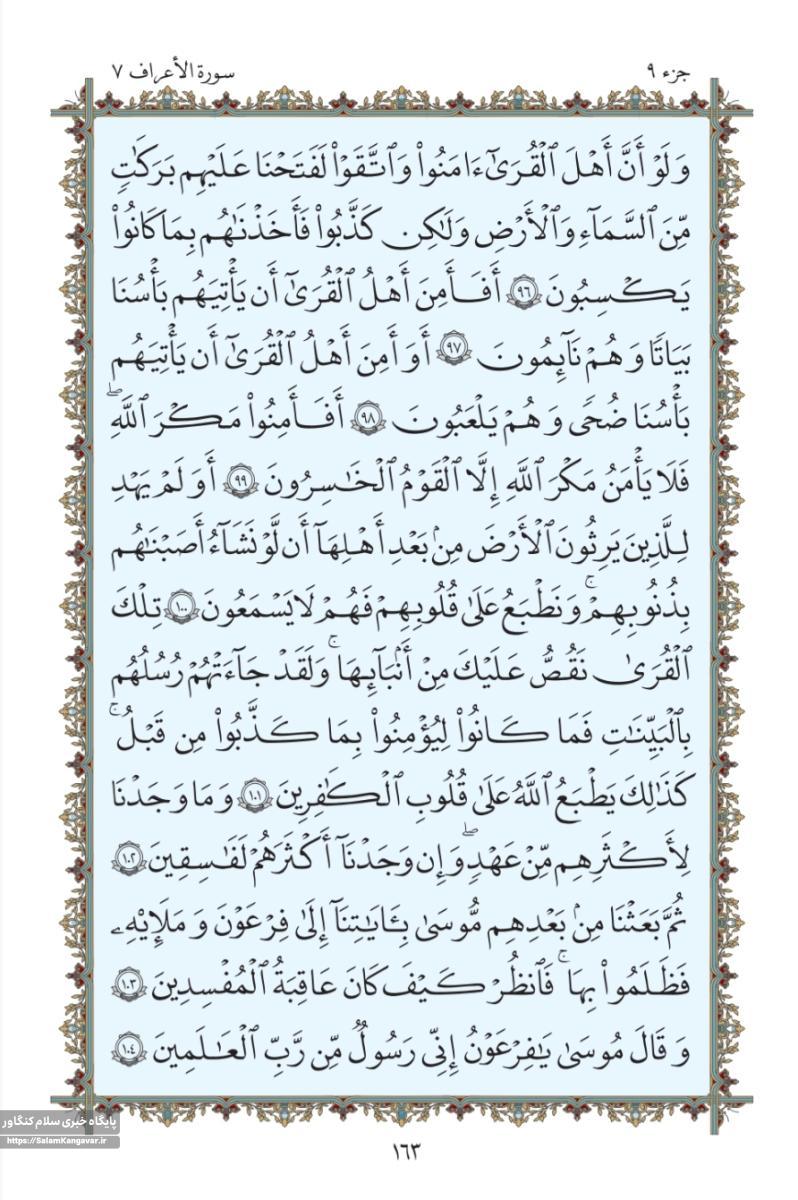 جزء ٩
سورة الأعراف ٧
وَلَوْ أَنَّ أَهْلَ ٱلْقُرَىٰٓ ءَامَنُوا۟ وَٱتَّقَوْا۟ لَفَتَحْنَا عَلَيْهِم بَرَكَٰتٍ
مِّنَ ٱلسَّمَآءِ وَٱلْأَرْضِ وَلَٰكِن كَذَّبُوا۟ فَأَخَذْنَٰهُم بِمَا كَانُوا۟
يَكْسِبُونَ ٩٦ أَفَأَمِنَ أَهْلُ ٱلْقُرَىٰٓ أَن يَأْتِيَهُم بَأْسُنَا
بَيَٰتًا وَهُمْ نَآئِمُونَ ٩٧ أَوَ أَمِنَ أَهْلُ ٱلْقُرَىٰٓ أَن يَأْتِيَهُم
بَأْسُنَا ضُحًى وَهُمْ يَلْعَبُونَ ٩٨ أَفَأَمِنُوا۟ مَكْرَ ٱللَّهِ ۖ
فَلَا يَأْمَنُ مَكْرَ ٱللَّهِ إِلَّا ٱلْقَوْمُ ٱلْخَٰسِرُونَ ٩٩ أَوَلَمْ يَهْدِ
لِلَّذِينَ يَرِثُونَ ٱلْأَرْضَ مِنۢ بَعْدِ أَهْلِهَآ أَن لَّوْ نَشَآءُ أَصَبْنَٰهُم
بِذُنُوبِهِمْ ۚ وَنَطْبَعُ عَلَىٰ قُلُوبِهِمْ فَهُمْ لَا يَسْمَعُونَ ١٠٠ تِلْكَ
ٱلْقُرَىٰ نَقُصُّ عَلَيْكَ مِنْ أَنۢبَآئِهَا ۚ وَلَقَدْ جَآءَتْهُمْ رُسُلُهُم
بِٱلْبَيِّنَٰتِ فَمَا كَانُوا۟ لِيُؤْمِنُوا۟ بِمَا كَذَّبُوا۟ مِن قَبْلُ ۚ
كَذَٰلِكَ يَطْبَعُ ٱللَّهُ عَلَىٰ قُلُوبِ ٱلْكَٰفِرِينَ ١٠١ وَمَا وَجَدْنَا
لِأَكْثَرِهِم مِّنْ عَهْدٍ ۖ وَإِن وَجَدْنَآ أَكْثَرَهُمْ لَفَٰسِقِينَ ١٠٢
ثُمَّ بَعَثْنَا مِنۢ بَعْدِهِم مُّوسَىٰ بِـَٔايَٰتِنَآ إِلَىٰ فِرْعَوْنَ وَمَلَإِيْهِۦ
فَظَلَمُوا۟ بِهَا ۚ فَٱنظُرْ كَيْفَ كَانَ عَٰقِبَةُ ٱلْمُفْسِدِينَ ١٠٣
وَقَالَ مُوسَىٰ يَٰفِرْعَوْنُ إِنِّى رَسُولٌ مِّن رَّبِّ ٱلْعَٰلَمِينَ ١٠٤
پایگاه خبری سلام کنگاور
https://SalamKangavar.ir
١٦٣